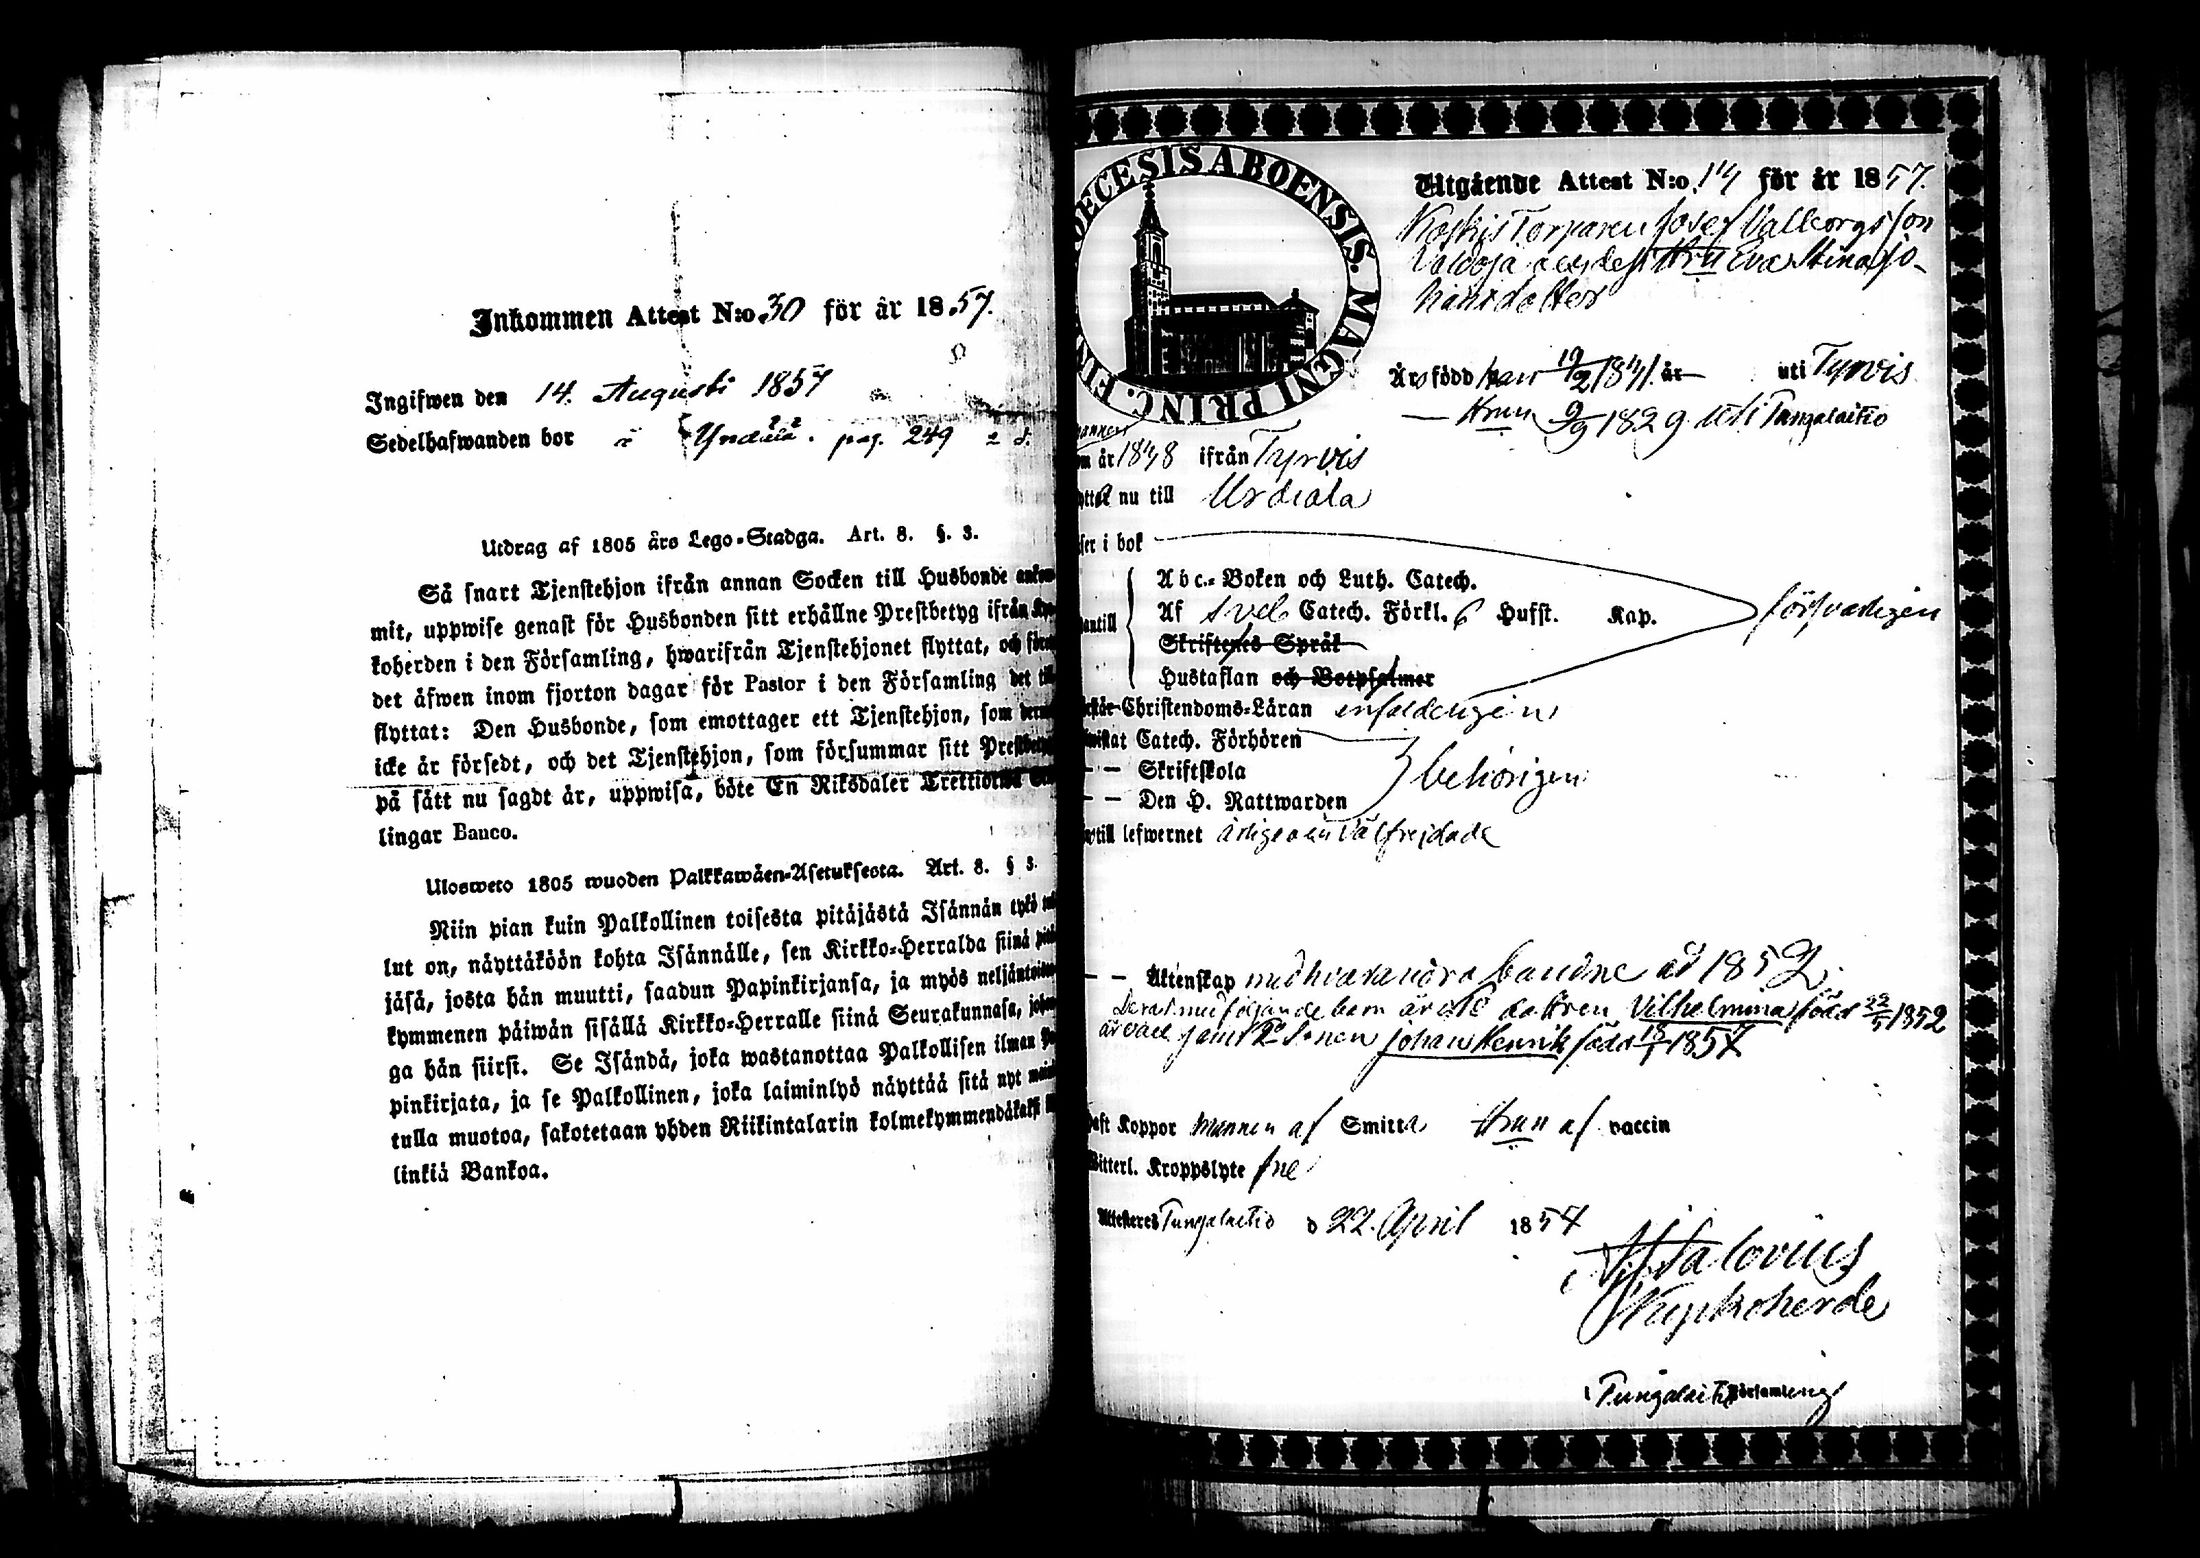 Inkommen Attest N:o 30 för år 1857.
Ingifwen den 14. Augusti 1857
Sedelhafwanden bor i pag. 249
Utdrag af 1805 års Lego-Stadga. Art. 8. §. 3.
Så snart Tjenstehjon ifrån annan Socken till Husbonde ankom-
mit, uppwise genast för Husbonden sitt erhållne Prestbetyg ifrån Kyr-
koherden i den Församling, hwarifrån Tjenstehjonet flyttat, och förete
det äfwen inom fjorton dagar för Pastor i den Församling det till-
flyttat: Den Husbonde, som emottager ett Tjenstehjon, som dermed
icke är försedt, och det Tjenstehjon, som försummar sitt Prestbetyg
på sätt nu sagdt är, uppwisa, böte En Riksdaler Trettiotwå
lingar Banco.
Ulosweto 1805 wuoden Palkkawäen-Asetuksesta. Art. 8. § 3.
Niin pian kuin Palkollinen toisesta pitäjästä Isännän tykö
lut on, näyttäköön kohta Isännälle, sen Kirkko-Herralda siinä
jäsä, josta hän muutti, saadun Papinkirjansa, ja myös neljäntoista-
kymmenen päiwän sisällä Kirkko-Herralle siinä Seurakunnasa, johon-
ga hän siirsi. Se Isändä, joka wastanottaa Palkollisen ilman
pinkirjata, ja se Palkollinen, joka laiminlyö näyttää sitä nyt
tulla muotoa, sakotetaan yhden Riikintalarin kolmekymmendäkaksi
linkiä Bankoa.
DECESIS ABOENSIS. MAGNI PRINC. FIN
Utgående Attest N:o 14 för år 1857.
Torparen Josef Valborgsson
Hru Eva Stina Jo-
hansdotter
Års född han 19/2 18 år uti Tyrvis
Hrun 9/9 1829 uti Tungalaitio
om år 1848 ifrån Tyrvis
nu till Urdiala
i bok
Abc.-Boken och Luth. Catech.
Af Sveb Catech. Förkl. 6 Hufst. Kap. försvarligen
Skriftenes Språk
Hustaflan och Botpsalmer
Christendoms-Läran enfaldeligen
Catech. Förhören
— — Skriftskola behörigen
— — Den H. Nattwarden
till lefwernet ärlige och välfrejdade
— — Äktenskap med hvarandra 1852
Deras medföljande barn äro dottren Vilhelmina född 22/5 1852
samt Sonen Johan Henrik född 18/1 1857
haft Koppor mannen af Smitta Hrun af vaccin
Witterl. Kroppslyte fne
Attesteras Tungalaitio d 22. April 1857
Kyrkoherde
i Tungalaitio Församling